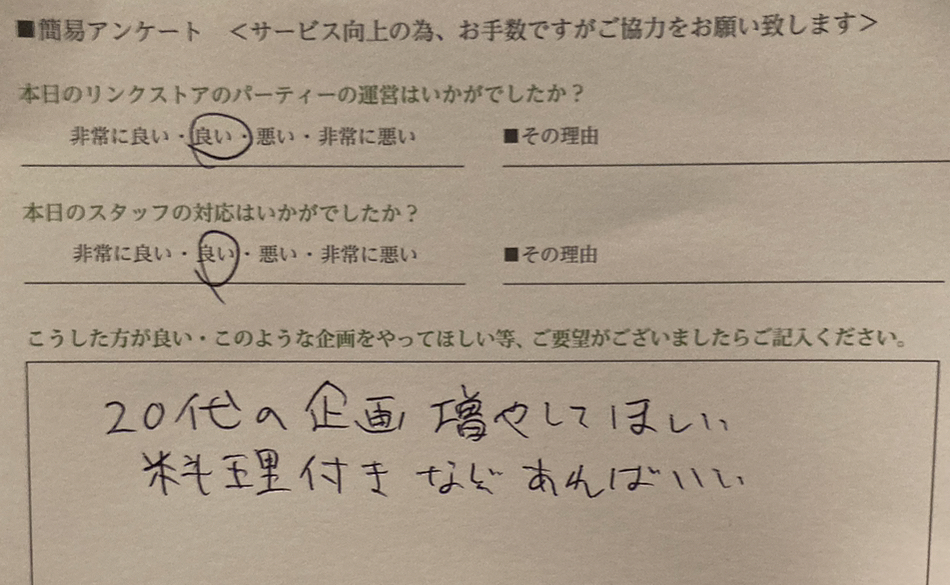 ■簡易アンケート ＜サービス向上の為、お手数ですがご協力をお願い致します＞
本日のリンクストアのパーティーの運営はいかがでしたか？
非常に良い・良い・悪い・非常に悪い ■その理由
本日のスタッフの対応はいかがでしたか？
非常に良い・良い・悪い・非常に悪い ■その理由
こうした方が良い・このような企画をやってほしい等、ご要望がございましたらご記入ください。
20代の企画増やしてほしい
料理付きなどあればいい